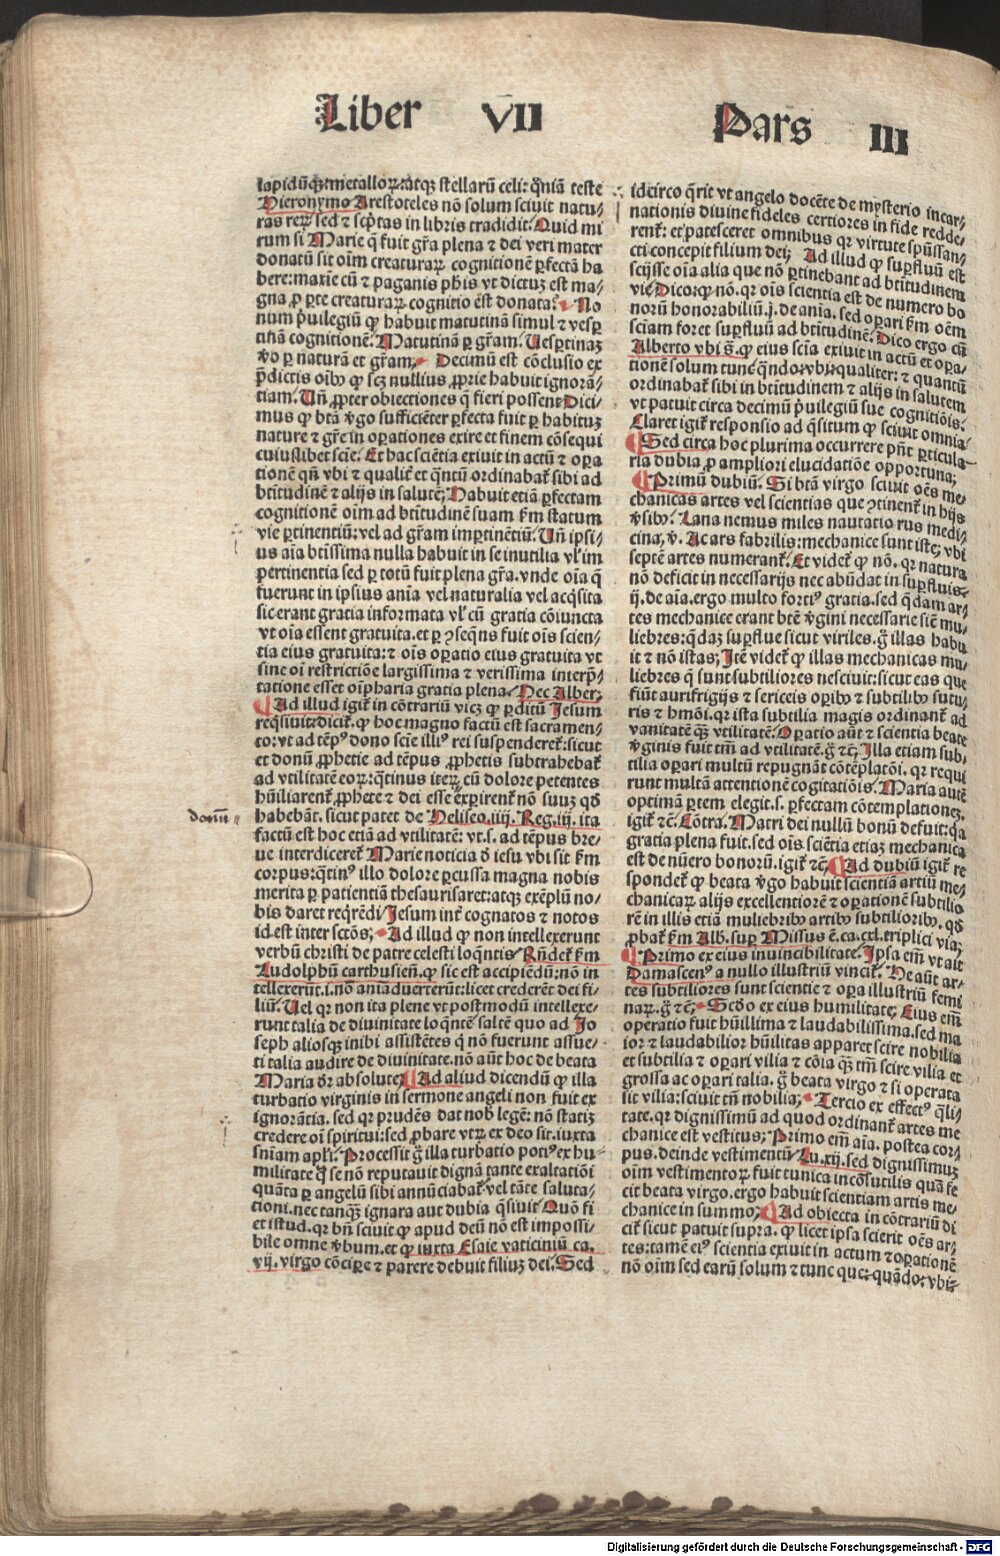 Liber VII Pars III
lapidūqꝫ metalloꝝ: atqꝫ stellarū celi: qm̄iā teste
Hieronymo Arestoteles nō solum sciuit natu-
ras reꝝ sed ⁊ sc̄ptas in libris tradidit. Quid mi
rum si Marie q̄ fuit gr̄a plena ⁊ dei veri mater
donatū sit oīm creaturaꝝ cognitionē ꝑfectā ha
bere: maxīe cū ⁊ paganis ph̄is vt dictuꝫ est ma-
gna ꝓ ꝑte creaturaꝝ cognitio est donata. No
num pͥuilegiū ꝙ habuit matutinā simul ⁊ vesꝑ
tinā cognitionē. Matutinā ꝑ gr̄am. Uesꝑtinaꝫ
ꝟo ꝑ naturā ⁊ gr̄am. Decimū est cōclusio ex
p̄dictis oībꝰ ꝙ scꝫ nullius ꝓprie habuit ignorā-
tiam. Un̄ ꝓpter obiectiones q̄ fieri possent Dici-
mus ꝙ btā ꝟgo sufficiēter ꝑfecta fuit ꝑ habituꝫ
nature ⁊ gr̄e in oꝑationes exire et finem cōsequi
cuiuslibet scīe. Et hac sciētia exiuit in actū ⁊ oꝑa
tionē qn̄ vbi ⁊ qualiť et q̄ntū ordinabať sibi ad
btītudinē ⁊ alijs in salutē; Habuit etiā ꝑfectam
cognitionē oīm ad btītudinē suam km̄ statum
vie ꝑtinentiū: vel ad gr̄am imꝑtinētiū. Un̄ ipsi-
us aīa btīssima nulla habuit in se inutilia vl' im
ꝑtinentia sed ꝑ totū fuit plena gr̄a. vnde oīa q̄
fuerunt in ipsius anīa vel naturalia vel acq̄sita
sic erant gratia informata vl' cū gratia cōiuncta
vt oīa essent gratuita. et ꝑ ↄseq̄ns fuit oīs scien-
tia eius gratuita: ⁊ oīs oꝑatio eius gratuita vt
sine oī restrictiōe largissima ⁊ verissima interp̄-
tatione esset oīpharia gratia plena. Hec Alber;
Ad illud igiť in cōtrariū vicꝫ ꝙ ꝑditū Jesum
reqsiuit: diciť. ꝙ hoc magno factū est sacramen-
to: vt ad tēpꝰ dono scīe illiꝰ rei suspendereť: sicut
et donū ꝓphetie ad tēpus ꝓphetis subtrahebať
ad vtilitatē eoꝝ: q̄tinus iteꝝ cū dolore petentes
hūiliarenť ꝓphete ⁊ dei esse exꝑirenť nō suuꝫ qd̄
donū
habebāt. sicut patet de Heliseo. iiij. Reg. iij. ita
factū est hoc etiā ad vtilitatē: vt. s. ad tēpus bre-
ue interdicereť Marie noticia d̄ iesu vbi sit km̄
corpus: q̄tinꝰ illo dolore ꝑcussa magna nobis
merita ꝑ patientiā thesaurisaret: atqꝫ exēplū no-
bis daret req̄rēdi Jesum inť cognatos ⁊ notos
id est inter sctōs; Ad illud ꝙ non intellexerunt
verbū christi de patre celesti loq̄ntis Rn̄deť km̄
Ludolphū carthusien̄. ꝙ sic est accipiēdū: nō in
tellexerūt. i. nō aniaduerterūt: licet crederēt dei fi-
liū. Uel qꝛ non ita plene vt postmodū intellexe-
runt talia de diuinitate loq̄ntē saltē quo ad Jo
seph aliosqꝫ inibi assistētes q̄ nō fuerunt assue-
ti talia audire de diuinitate. nō aūt hoc de beata
Maria dꝛ absolute; Ad aliud dicendū ꝙ illa
turbatio virginis in sermone angeli non fuit ex
ignorātia. sed qꝛ prudēs dat nob̄ legē: nō statiꝫ
credere oī spiritui: sed ꝓbare vtꝝ ex deo sit. iuxta
sn̄iam apl'i. Processit ḡ illa turbatio potiꝰ ex hu-
militate q̄ se nō reputauit dignā tante exaltatiōi
quāta ꝑ angelū sibi annūciabať vel tāte saluta-
tioni. nec tanqꝫ ignara aut dubia q̄siuit Quō fi
et istud. qꝛ bn̄ sciuit ꝙ apud deū nō est impossi-
bile omne ꝟbum. et ꝙ iuxta Esaie vaticiniū ca.
vij. virgo cōciꝑe ⁊ parere debuit filiuꝫ dei. Sed
idcirco q̄rit vt angelo docēte de mysterio incar-
nationis diuine fideles certiores in fide redde-
renť: et patesceret omnibus qꝛ virtute spūssan-
cti concepit filium dei; Ad illud ꝙ suꝑfluū est
scijsse oīa alia que nō ꝑtinebant ad btītudinem
vie Dico ꝙ nō. qꝛ oīs scientia est de numero bo
norū honorabiliū. j. de anīa. sed oꝑari km̄ oēm
sciam foret suꝑfluū ad btītudinē. Dico ergo cū
Alberto vbi s̄. ꝙ eius scīa exiuit in actū et oꝑa-
tionē solum tunc q̄ndo: vbi: qualiter: ⁊ quantū
ordinabať sibi in btītudinem ⁊ alijs in salutem
vt patuit circa decimū pͥuilegiū sue cognitiōis.
Claret igiť responsio ad q̄situm ꝙ sciuit omnia.
Sed circa hoc plurima occurrere pn̄t ꝑticula-
ria dubia ꝓ ampliori elucidatiōe opportuna;
Primū dubiū. Si btā virgo sciuit oēs me-
chanicas artes vel scientias que ↄtinenť in hijs
ꝟsibꝰ. Lana nemus miles nauratio rus medi-
cina, ꝟ. Ac ars fabrilis: mechanice sunt iste; vbi
septē artes numeranť. Et videť ꝙ nō. qꝛ natura
nō deficit in necessarijs nec abūdat in suꝑfluis.
ij. de aīa. ergo multo fortiꝰ gratia. sed q̄dam ar-
tes mechanice erant btē ꝟgini necessarie sic̄ mu-
liebres: q̄daꝫ suꝑflue sicut viriles. ḡ illas habu
it ⁊ nō istas; Itē videť ꝙ illas mechanicas mu-
liebres q̄ sunt subtiliores nesciuit: sicut eas que
fiūt aurifrigijs ⁊ sericeis oꝑibꝰ ⁊ subtilibꝰ sutu-
ris ⁊ hmōi. qꝛ ista subtilia magis ordinanť ad
vanitatē qꝫ vtilitatē. Oꝑatio aūt ⁊ scientia beate
ꝟginis fuit tm̄ ad vtilitatē. ḡ ⁊c̄. Illa etiam sub-
tilia oꝑari multū repugnāt cōtēplatōi. qꝛ requi
runt multā attentionē cogitatiōis. Maria autē
optimā ꝑtem elegit. s. ꝑfectam cōtemplationeꝫ.
igiť ⁊c̄. Cōtra. Matri dei nullū bonū defuit: q̄a
gratia plena fuit. sed oīs sciētia etiaꝫ mechanica
est de nūero bonorū. igiť ⁊c̄. Ad dubiū igiť re
spondeť ꝙ beata ꝟgo habuit scientiā artiū me-
chanicaꝝ alijs excellentiorē ⁊ oꝑationē subtilio
rē in illis etiā muliebribꝰ artibꝰ subtilioribꝰ. qd̄
ꝓbať km̄ Alb. suꝑ Missus ē. ca. cxl. triplici via;
Primo ex eius inuincibilitate. Ipsa em̄ vt ait
Damascenꝰ a nullo illustriū vinciť. He aūt ar-
tes subtiliores sunt scientie ⁊ oꝑa illustriū femi
naꝝ. ḡ ⁊c̄. Sctd̄o ex eius humilitate; Eius em̄
operatio fuit hūillima ⁊ laudabilissima. sed ma
ior ⁊ laudabilior hūilitas apparet scire nobilia
et subtilia ⁊ oꝑari vilia ⁊ cōia qꝫ tm̄ scire vilia et
grossa ac oꝑari talia. ḡ beata virgo ⁊ si operata
sit vilia: sciuit tn̄ nobilia; Tercio ex effectꝰ q̄li-
tate. qꝛ dignissimū ad quod ordinanť artes me
chanice est vestitus; Primo em̄ aīa. postea cor-
pus. deinde vestimentū. Lu. xij. sed dignissimuꝫ
oīm vestimentoꝝ fuit tunica incōsutilis quā fe
cit beata virgo. ergo habuit scientiam artis me-
chanice in summo; Ad obiecta in cōtrariū di
ciť sicut patuit supra. ꝙ licet ipsa scierit oēs ar-
tes: tamē eiꝰ scientia exiuit in actum ⁊ oꝑationē
nō oīm sed earū solum ⁊ tunc que: quādo: vbi:
Digitalisierung gefördert durch die Deutsche Forschungsgemeinschaft - DFG